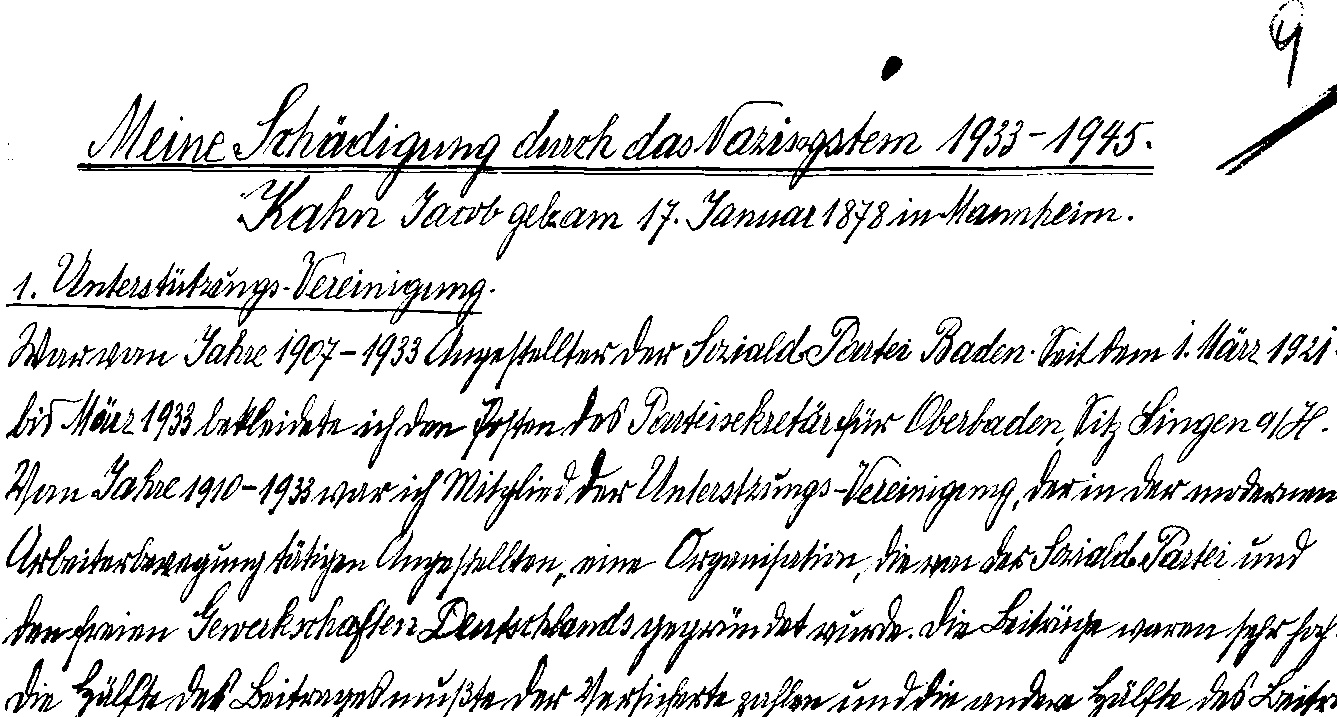 9
Meine Schädigung durch das Nazisystem 1933-1945.
Kahn Jacob geb. am 17. Januar 1878 in Mannheim.
1. Unterstützungs-Vereinigung.
War vom Jahre 1907-1933 Angestellter der Soziald. Partei Baden. Seit dem 1. März 1921
bis März 1933 bekleidete ich den Posten des Parteisekretär für Oberbaden, Sitz Singen a/H.
Vom Jahre 1910-1933 war ich Mitglied der Unterstzungs-Vereinigung, der in der modernen
Arbeiterbewegung tätigen Angestellten, eine Organisation, die von der Soziald. Partei und
den freien Gewerkschaften Deutschlands gegründet wurde. Die Beiträge waren sehr hoch.
Die Hälfte des Beitrages mußte der Versicherte zahlen und die andere Hälfte des Beitr.